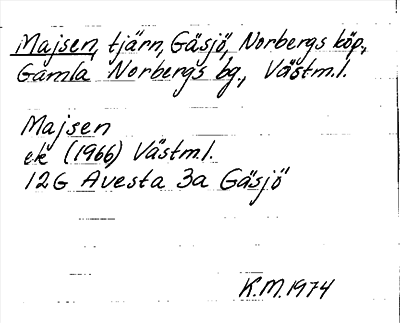 Majsen, tjärn, Gäsjö, Norbergs köp.,
Gamla Norbergs bg., Västm.l.
Majsen
ek (1966) Västm.l.
12G Avesta 3a Gäsjö
K.M. 1974